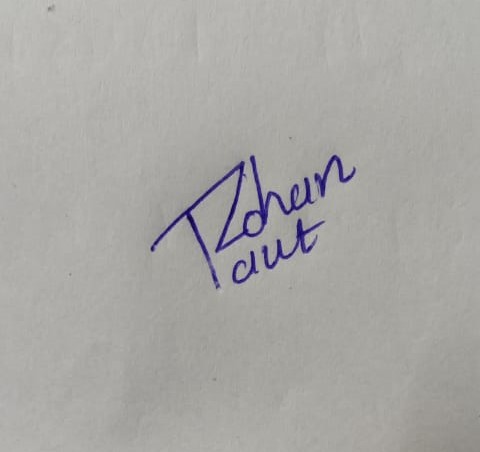 Rohan
aut